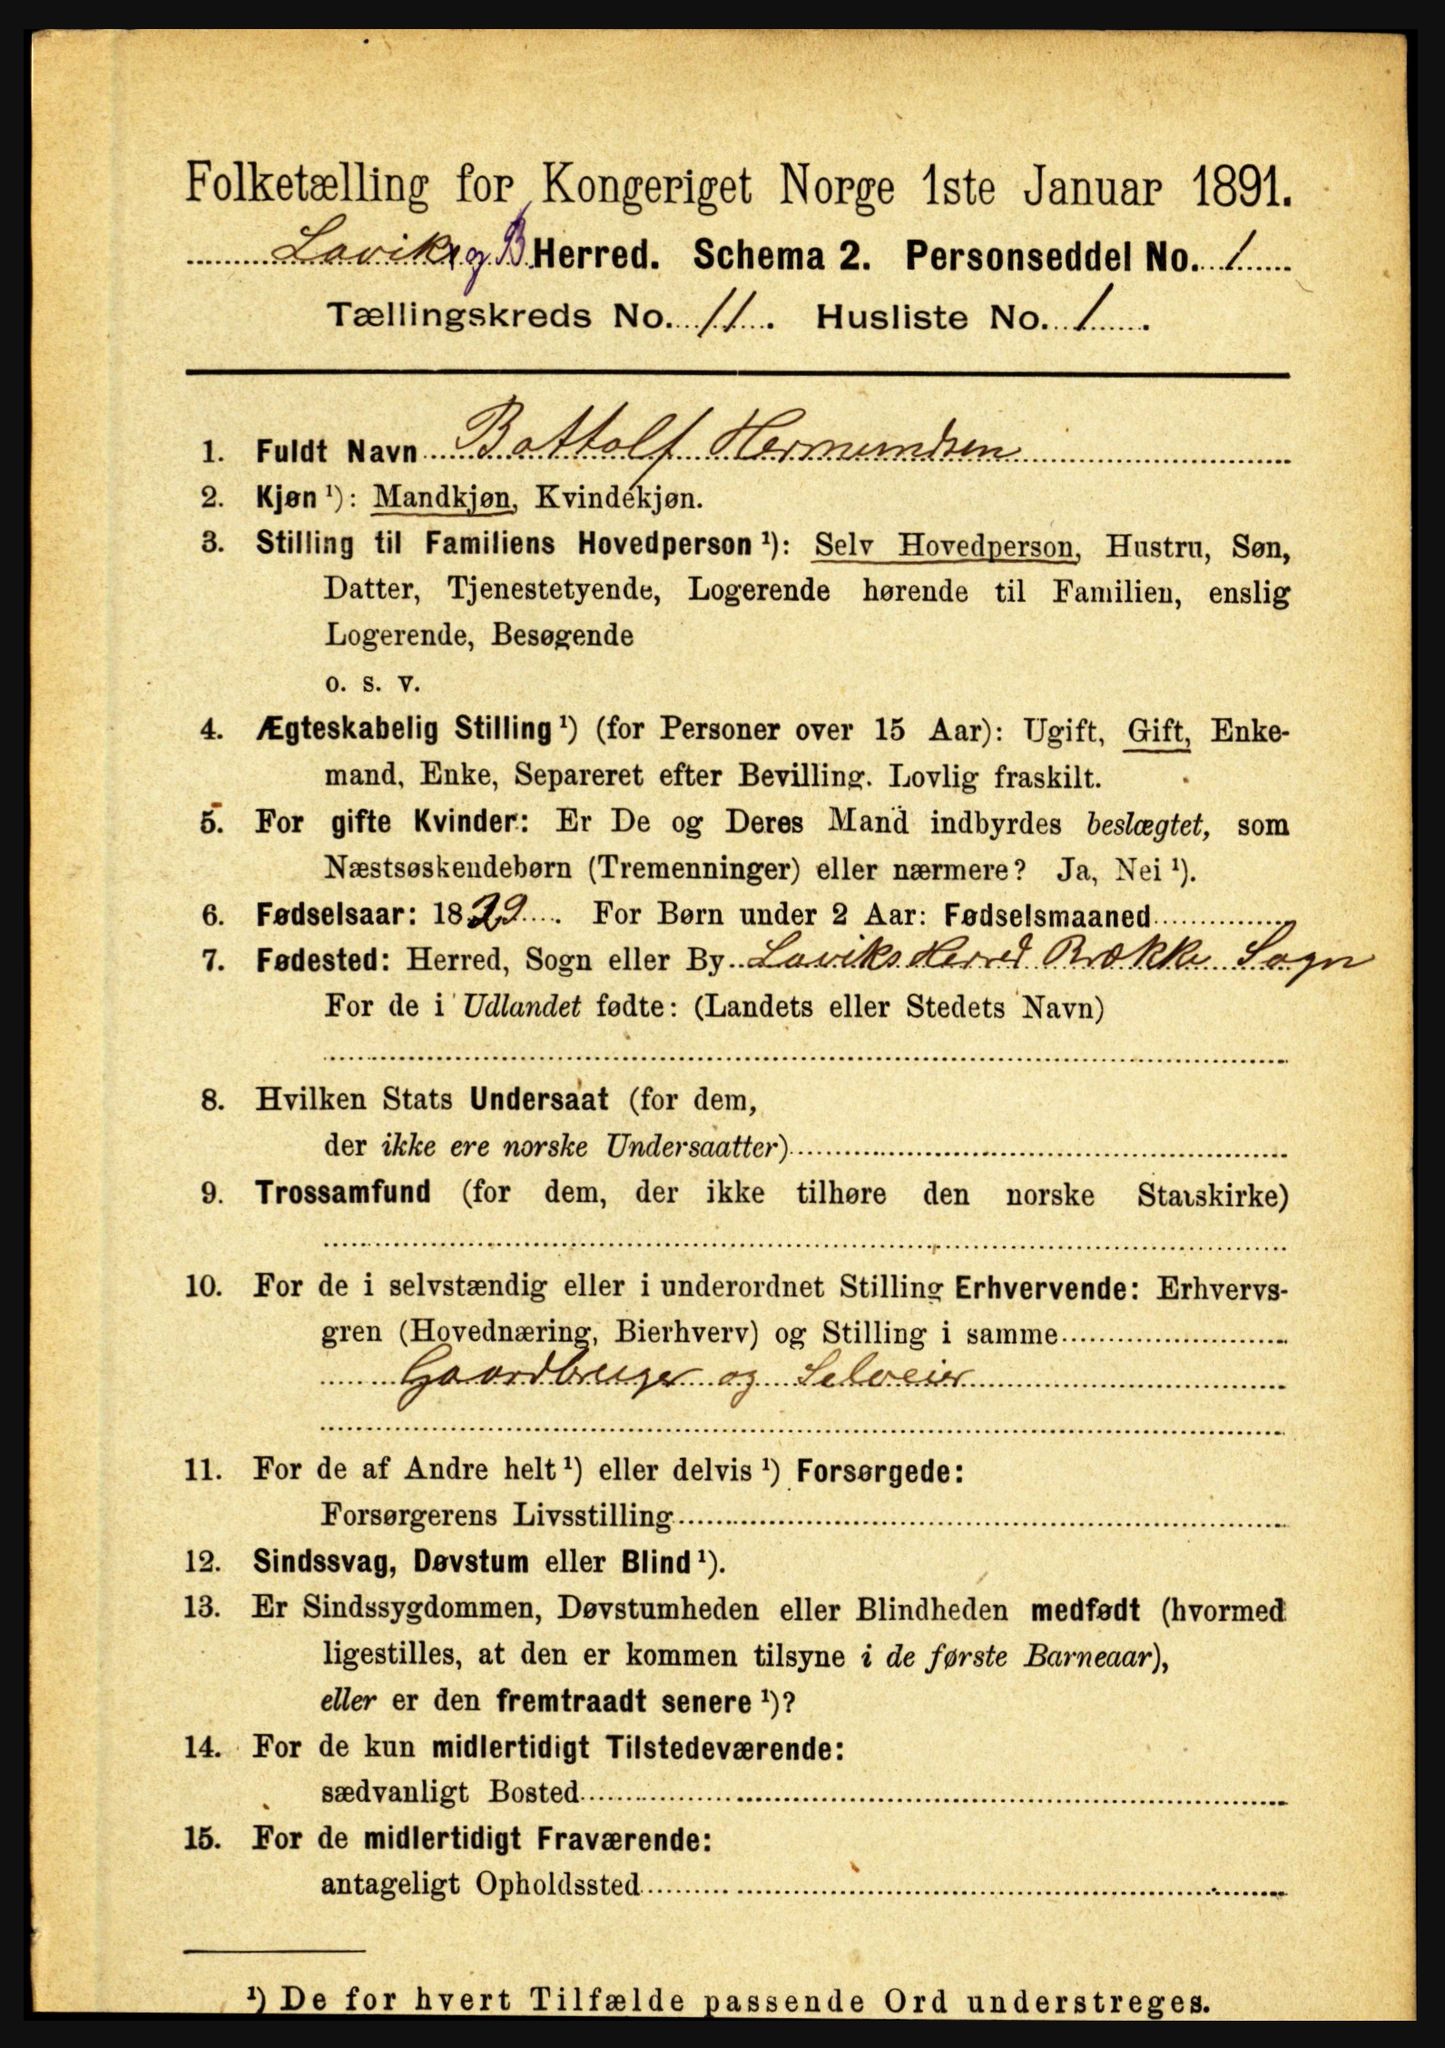 Folketælling for Kongeriget Norge 1ste Januar 1891.
Laviks og B Herred. Schema 2. Personseddel No. 1
Tællingskreds No. 11. Husliste No. 1.
1. Fuldt Navn Bottolf Hermundsen
2. Kjøn ¹): Mandkjøn, Kvindekjøn.
3. Stilling til Familiens Hovedperson ¹): Selv Hovedperson, Hustru, Søn,
Datter, Tjenestetyende, Logerende hørende til Familien, enslig
Logerende, Besøgende
o. s. v.
4. Ægteskabelig Stilling ¹) (for Personer over 15 Aar): Ugift, Gift, Enke-
mand, Enke, Separeret efter Bevilling. Lovlig fraskilt.
5. For gifte Kvinder: Er De og Deres Mand indbyrdes beslægtet, som
Næstsøskendebørn (Tremenninger) eller nærmere? Ja, Nei ¹).
6. Fødselsaar: 1829. For Børn under 2 Aar: Fødselsmaaned
7. Fødested: Herred, Sogn eller By Laviks Herred Brække Sogn
For de i Udlandet fødte: (Landets eller Stedets Navn)
8. Hvilken Stats Undersaat (for dem,
der ikke ere norske Undersaatter)
9. Trossamfund (for dem, der ikke tilhøre den norske Statskirke)
10. For de i selvstændig eller i underordnet Stilling Erhvervende: Erhvervs-
gren (Hovednæring, Bierhverv) og Stilling i samme
Gaardbruger og Selveier
11. For de af Andre helt ¹) eller delvis ¹) Forsørgede:
Forsørgerens Livsstilling
12. Sindssvag, Døvstum eller Blind ¹).
13. Er Sindssygdommen, Døvstumheden eller Blindheden medfødt (hvormed
ligestilles, at den er kommen tilsyne i de første Barneaar),
eller er den fremtraadt senere ¹)?
14. For de kun midlertidigt Tilstedeværende:
sædvanligt Bosted
15. For de midlertidigt Fraværende:
antageligt Opholdssted
¹) De for hvert Tilfælde passende Ord understreges.